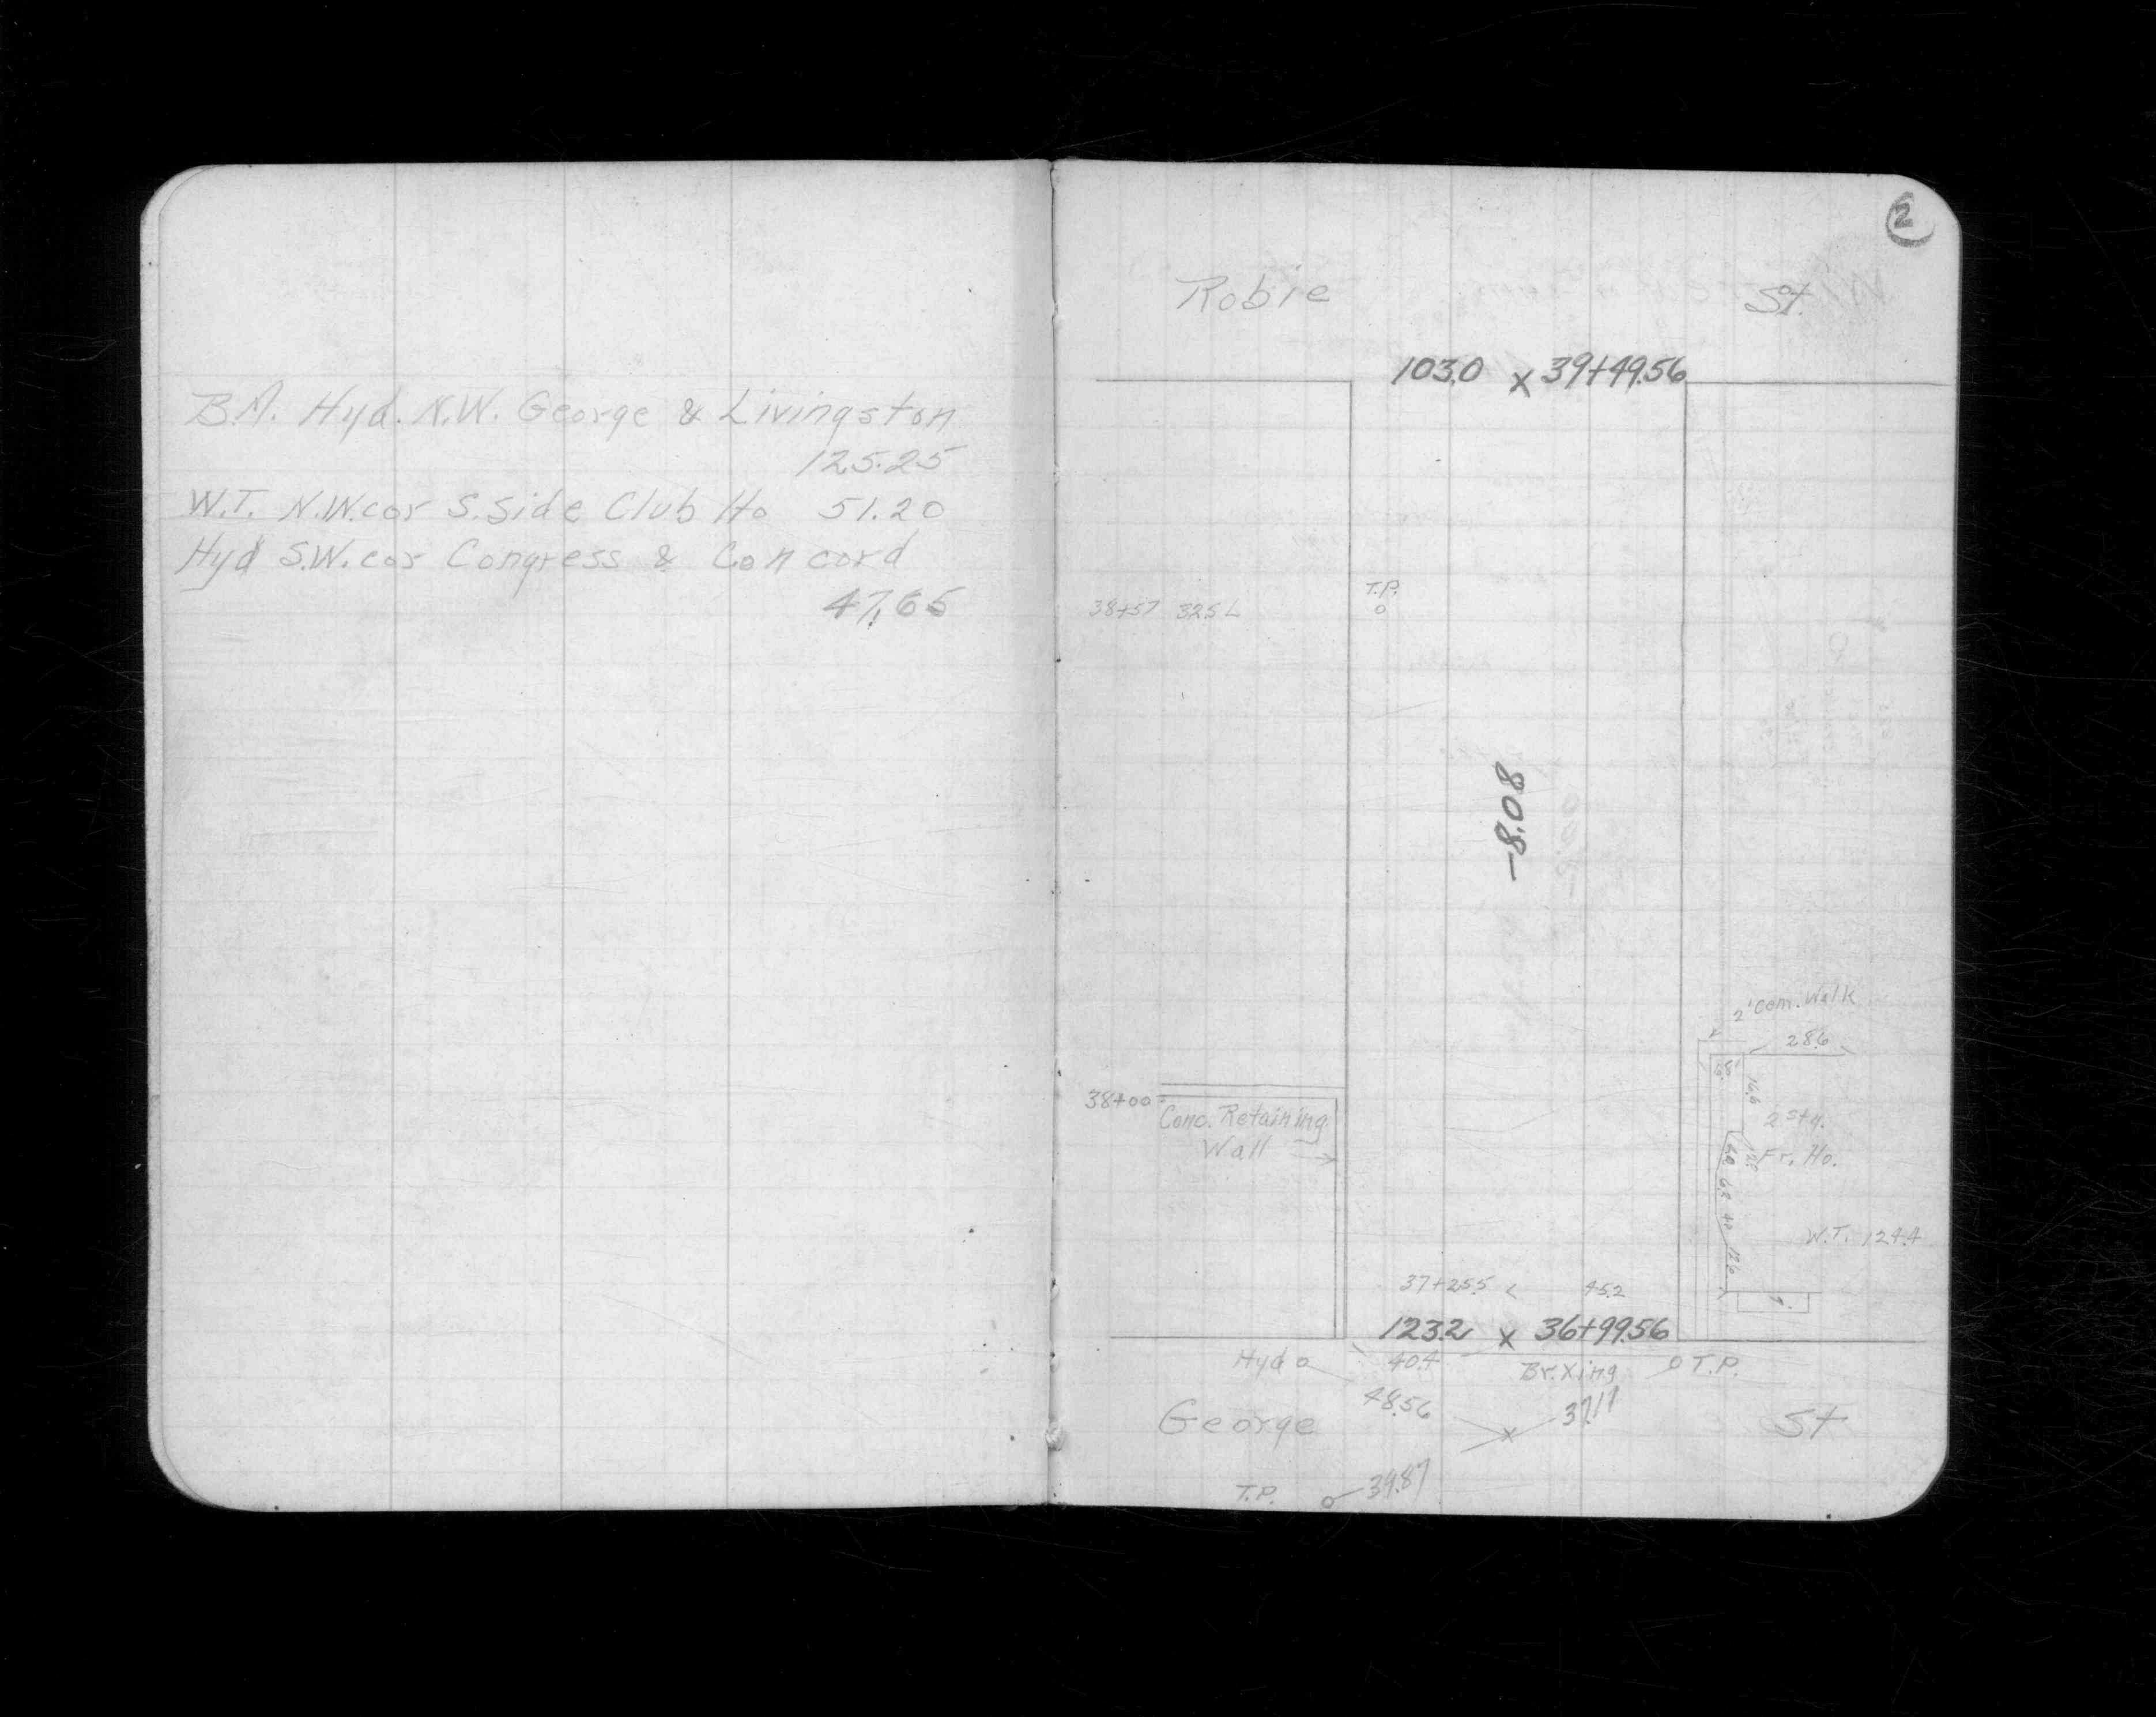 B.M. Hyd. N.W. George & Livingston
125.25
W.T. N.W. cor S. Side Club Ho 51.20
Hyd S.W. cor Congress & Concord
47.65
2
Robie St.
103.0 x 39+49.56
T.P.
38+57 32.5 L
-8.08
2' Cem. Walk
28.6
38+00
Conc. Retaining
Wall
16.6
2 sty.
Fr. Ho.
W.T. 124.4
37+25.5 45.2
123.2 x 36+99.56
Hyd 40.4 Br. Xing T.P.
48.56 37.17
George St
T.P. 39.87